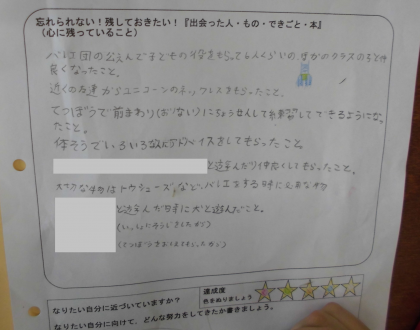 忘れられない！残しておきたい！『出会った人・もの・できごと・本』
(心に残っていること)
バレエ団の公えんで子どもの役をもらって
良くなったこと。
近くの友達からユニコーンのネックレスをもらったこと。
てつぼうで前まわり(おりない)にちょうせんして練習してできるようになっ
たこと。
体そうでいろいろ アドバイスをしてもらったこと。
と遊んだり仲良くしてもらったこと。
大切な物はトウシューズなど、バレエをする時に必要な物
と遊んだ時に犬と遊んだこと。
達成度
色をぬりましょう
なりたい自分に近づいていますか？
なりたい自分に向けて、どんな努力をしてきたか書きましょう。